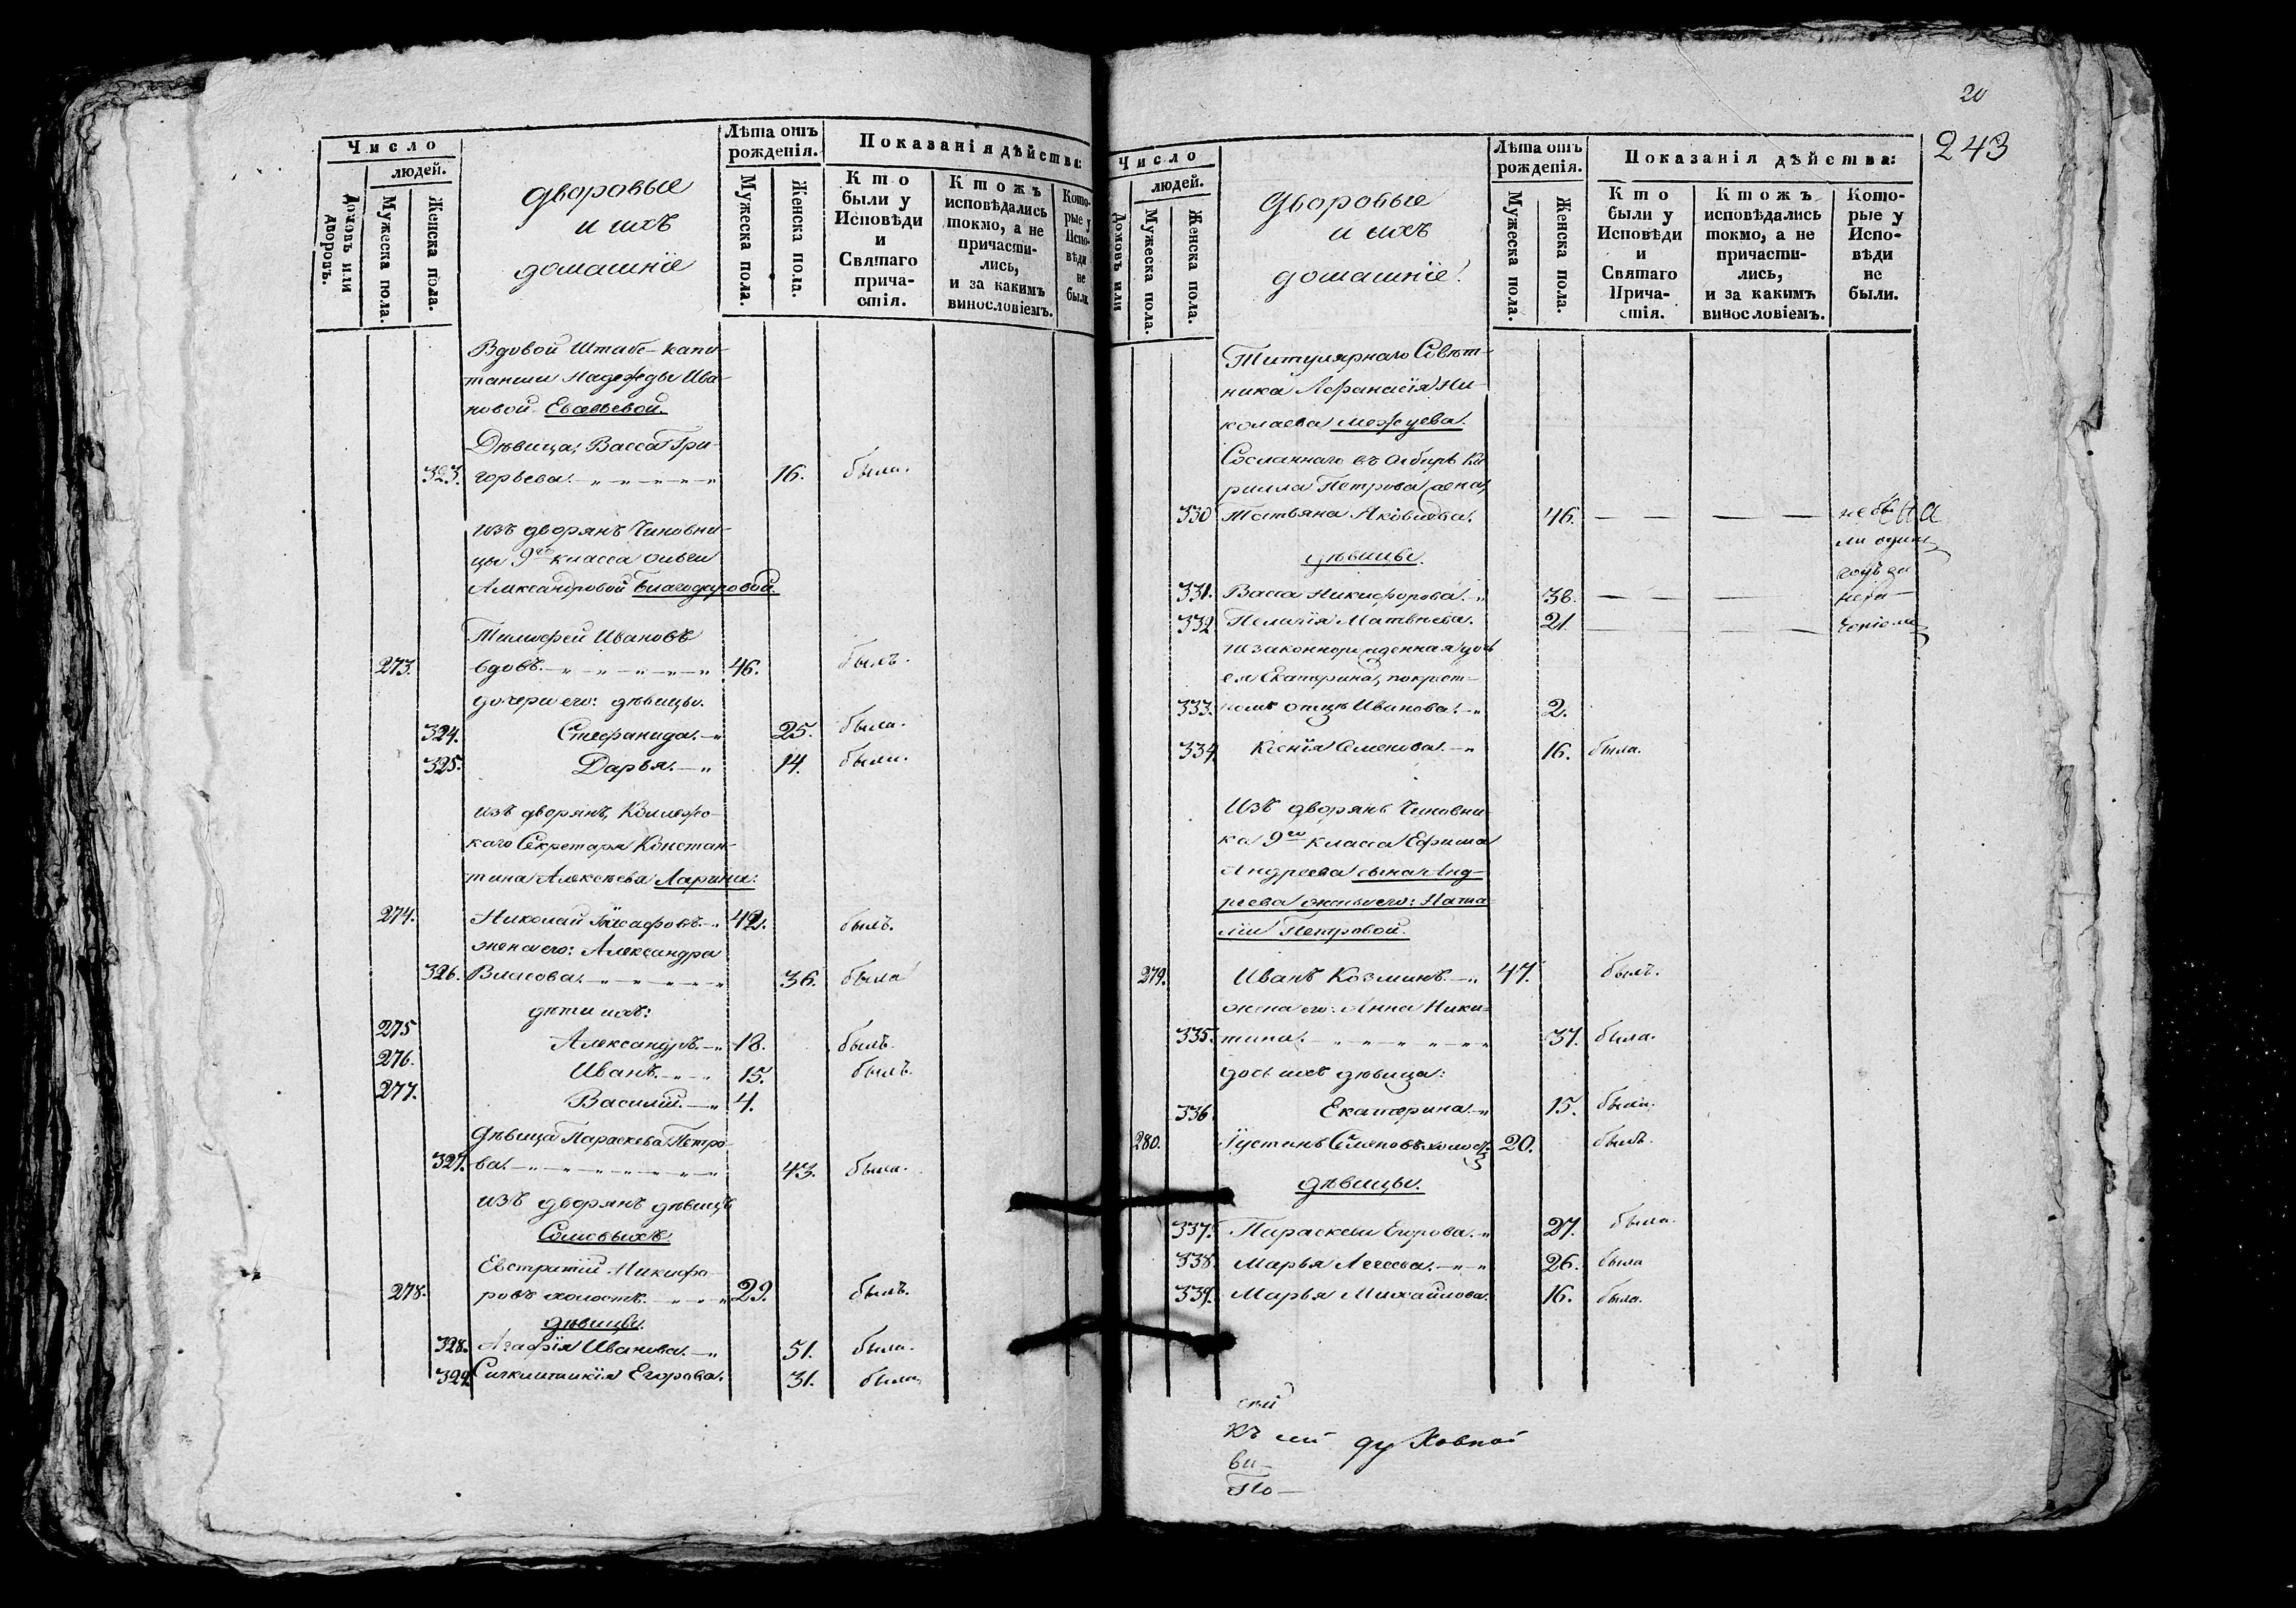 Число
людей.
Домовъ или дворовъ.
Мужеска пола.
Женска пола.
Дворовые
и ихъ
домашніе
Лѣта отъ
рожденія.
Мужеска пола.
Женска пола.
Показанія дѣйства:
Кто
были у
Исповѣди
и
Святаго
прича-
стія.
Ктожъ
исповѣдались
токмо, а не
причасти-
лись,
и за какимъ
винословіемъ.
Кото-
рые у
Испо-
вѣди
не
были.
Вдовой Штабс-капи-
танши Надежды Ива-
новой Евсевьевой.
Дѣвица, Васса Гри-
323. горьева. 16. была.
изъ дворянъ Чиновни-
цы 9го класса Ольги
Александровой Благодаровой.
Тимофей Ивановъ
273. вдовъ. 46. былъ.
дочери его: дѣвицы.
324. Стефанида. 25. была.
325. Дарья. 14. была.
изъ дворянъ, Коллежс-
каго Секретаря Констан-
тина Алексѣева Ларина:
274. Николай Іасафовъ. 42. былъ.
жена его: Александра
326. Власова. 36. была
дѣти ихъ:
275 Александръ. 18. былъ.
276. Иванъ. 15. былъ.
277. Василій. 4.
дѣвица Параскева Петро-
327. ва. 43. была.
изъ дворянъ дѣвицъ
Сомовыхъ.
Евстратій Никифо-
278. ровъ холостъ. 29. былъ.
дѣвицы.
328. Агафія Иванова. 51. была.
329. Синклитикія Егорова. 31. была.
20
243
Число
людей.
Домовъ или
Мужеска пола.
Женска пола.
Дворовые
и ихъ
домашніе.
Лѣта отъ
рожденія.
Мужеска пола.
Женска пола.
Показанія дѣйства:
Кто
были у
Исповѣди
и
Святаго
Прича-
стія.
Ктожъ
исповѣдались
токмо, а не
причасти-
лись,
и за какимъ
винословіемъ.
Кото-
рые у
Испо-
вѣди
не
были.
Титулярнаго Совѣт-
ника Афанасія Ни-
колаева Межуева.
Сосланнаго въ Сибирь Ки
рилла Петрова жена,
330 Татьяна Яковлева. 46. — — — — не бы
ли одинъ
дѣвицы. годъ за
331. Васса Никифорова. 38. — — — — нера-
332 Пелагія Матвѣева. 21. — — — — ченіемъ
незаконнорожденная дочь
ея Екатерина, по крест-
333. номъ отцѣ Иванова. 2.
334. Ксенія Семенова. 16. была.
Изъ дворянъ Чиновни-
ка 9го класса Ефима
Андреева сына Анд-
реева жены его: Ната
ліи Петровой.
279. Иванъ Козминъ. 47. былъ.
жена его: Анна Ники-
335. тина. 37. была.
дочь ихъ дѣвица:
336. Екатерина. 15. была.
280. Іустинъ Семеновъ холостъ 20. былъ.
дѣвицы.
337. Параскева Егорова. 27. была.
338. Марья Агеева. 26. была
339. Марья Михайлова. 16. была.
сей
къ сей духовной
ви-
По-